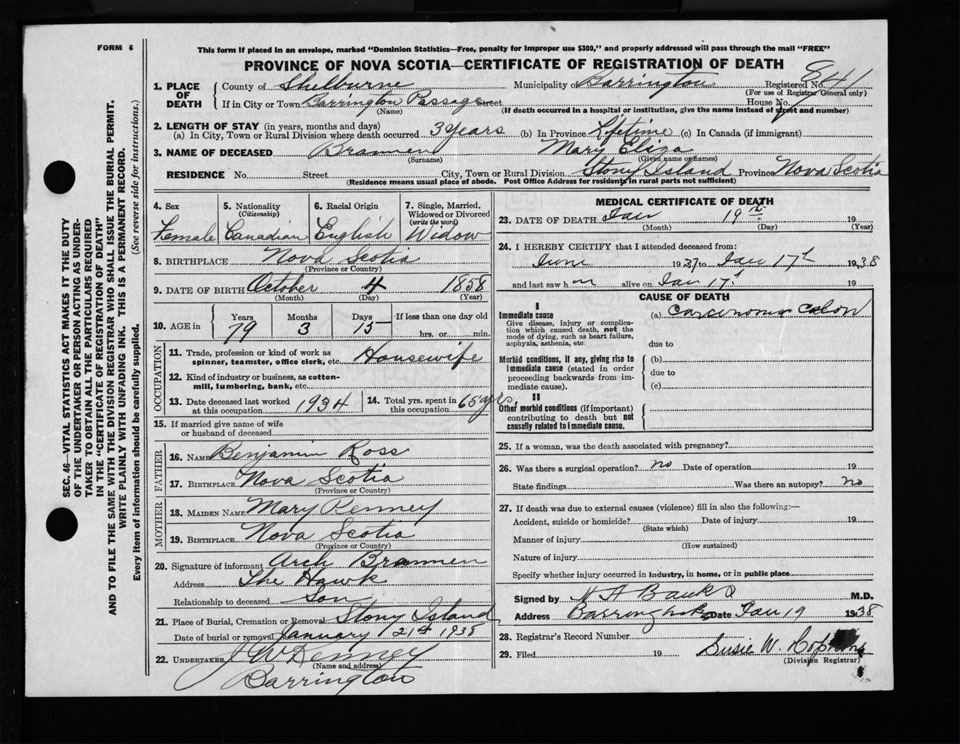 FORM 6
This form if placed in an envelope, marked "Dominion Statistics—Free, penalty for improper use $300," and properly addressed will pass through the mail "FREE"
PROVINCE OF NOVA SCOTIA—CERTIFICATE OF REGISTRATION OF DEATH
1. PLACE OF DEATH County of Shelburne Municipality of Barrington Registered No. 841
(For use of Registrar General only)
If in City or Town Barrington Passage Street House No.
(Name) (If death occurred in a hospital or institution, give the name instead of street and number)
2. LENGTH OF STAY (in years, months and days)
(a) In City, Town or Rural Division where death occurred 3 years (b) In Province Lifetime (c) In Canada (if immigrant)
3. NAME OF DECEASED Brannen Mary Eliza
(Surname) (Given name or names)
RESIDENCE No. Street City, Town or Rural Division Stony Island Province Nova Scotia
(Residence means usual place of abode. Post Office Address for residents in rural parts not sufficient)
4. Sex 5. Nationality (Citizenship) 6. Racial Origin 7. Single, Married, Widowed or Divorced (write the word)
Female Canadian English Widow
8. BIRTHPLACE Nova Scotia
(Province or Country)
9. DATE OF BIRTH October 4 1858
(Month) (Day) (Year)
10. AGE in Years Months Days If less than one day old
79 3 15 hrs. or min.
OCCUPATION
11. Trade, profession or kind of work as spinner, teamster, office clerk, etc. Housewife
12. Kind of industry or business, as cotton-mill, lumbering, bank, etc.
13. Date deceased last worked at this occupation 1934 14. Total yrs. spent in this occupation 65 yrs.
15. If married give name of wife or husband of deceased
FATHER
16. NAME Benjamin Ross
17. BIRTHPLACE Nova Scotia
(Province or Country)
MOTHER
18. MAIDEN NAME Mary Kenney
19. BIRTHPLACE Nova Scotia
(Province or Country)
20. Signature of informant Arch Brannen
Address The Hawk
Relationship to deceased Son
21. Place of Burial, Cremation or Removal Stony Island
Date of burial or removal January 21st 1938
22. UNDERTAKER J W Kenney
(Name and address)
Barrington
MEDICAL CERTIFICATE OF DEATH
23. DATE OF DEATH Jan 19th 19
(Month) (Day) (Year)
24. I HEREBY CERTIFY that I attended deceased from:
June 1937 to Jan 17th 1938
and last saw h alive on Jan 17th 19
CAUSE OF DEATH
I
Immediate cause (a) Carcinoma Colon
Give disease, injury or complication which caused death, not the mode of dying, such as heart failure, asphyxia, asthenia, etc.
due to
Morbid conditions, if any, giving rise to immediate cause (stated in order proceeding backwards from immediate cause).
(b)
due to
(c)
II
Other morbid conditions (if important) contributing to death but not causally related to immediate cause.
25. If a woman, was the death associated with pregnancy?
26. Was there a surgical operation? no Date of operation 19
State findings Was there an autopsy? no
27. If death was due to external causes (violence) fill in also the following:—
Accident, suicide or homicide? Date of injury 19
(State which)
Manner of injury
(How sustained)
Nature of injury
Specify whether injury occurred in industry, in home, or in public place
Signed by M.D.
Address Date Jan 19 1938
28. Registrar's Record Number
29. Filed 19 Susie W.
(Division Registrar)
SEC. 46—VITAL STATISTICS ACT MAKES IT THE DUTY
OF THE UNDERTAKER OR PERSON ACTING AS UNDER-
TAKER TO OBTAIN ALL THE PARTICULARS REQUIRED
IN THE "CERTIFICATE OF REGISTRATION OF DEATH"
AND TO FILE THE SAME WITH THE DIVISION REGISTRAR WHO SHALL ISSUE THE BURIAL PERMIT.
WRITE PLAINLY WITH UNFADING INK. THIS IS A PERMANENT RECORD.
Every item of information should be carefully supplied. (See reverse side for instructions.)